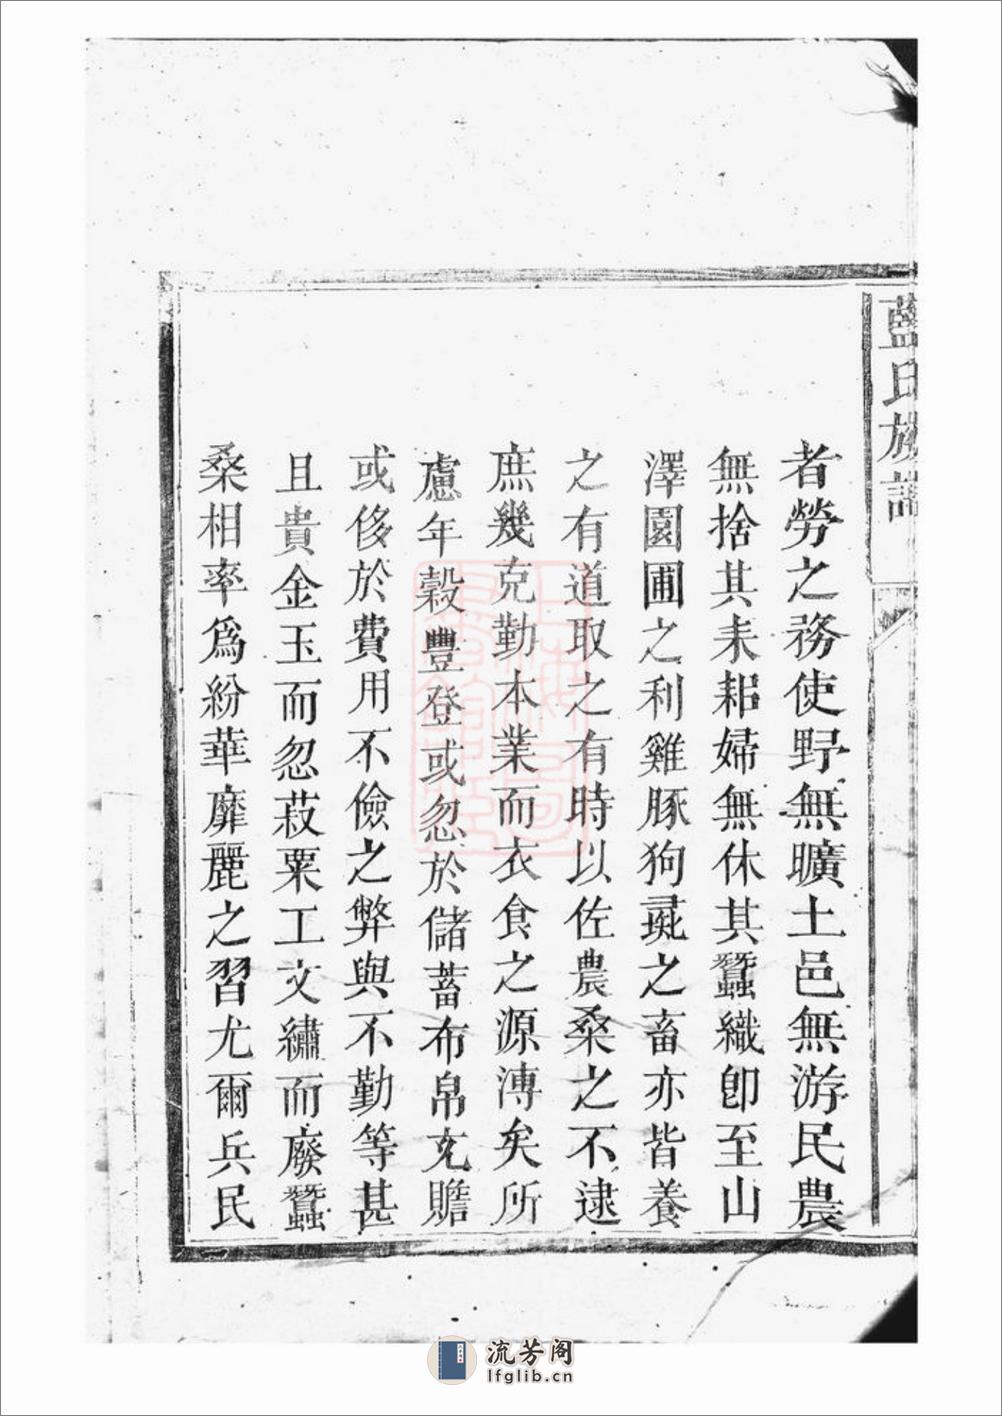 藍氏族譜
者勞之務使野無曠土邑無游民農
無捨其耒耜婦無休其蠶織卽至山
澤園圃之利雞豚狗彘之畜亦皆養
之有道取之有時以佐農桑之不逮
庶幾克勤本業而衣食之源溥矣所
慮年穀豐登或忽於儲蓄布帛充贍
或侈於費用不儉之弊與不勤等甚
且貴金玉而忽菽粟工文繡而廢蠶
桑相率爲紛華靡麗之習尤爾兵民
流芳阁
lfglib.cn